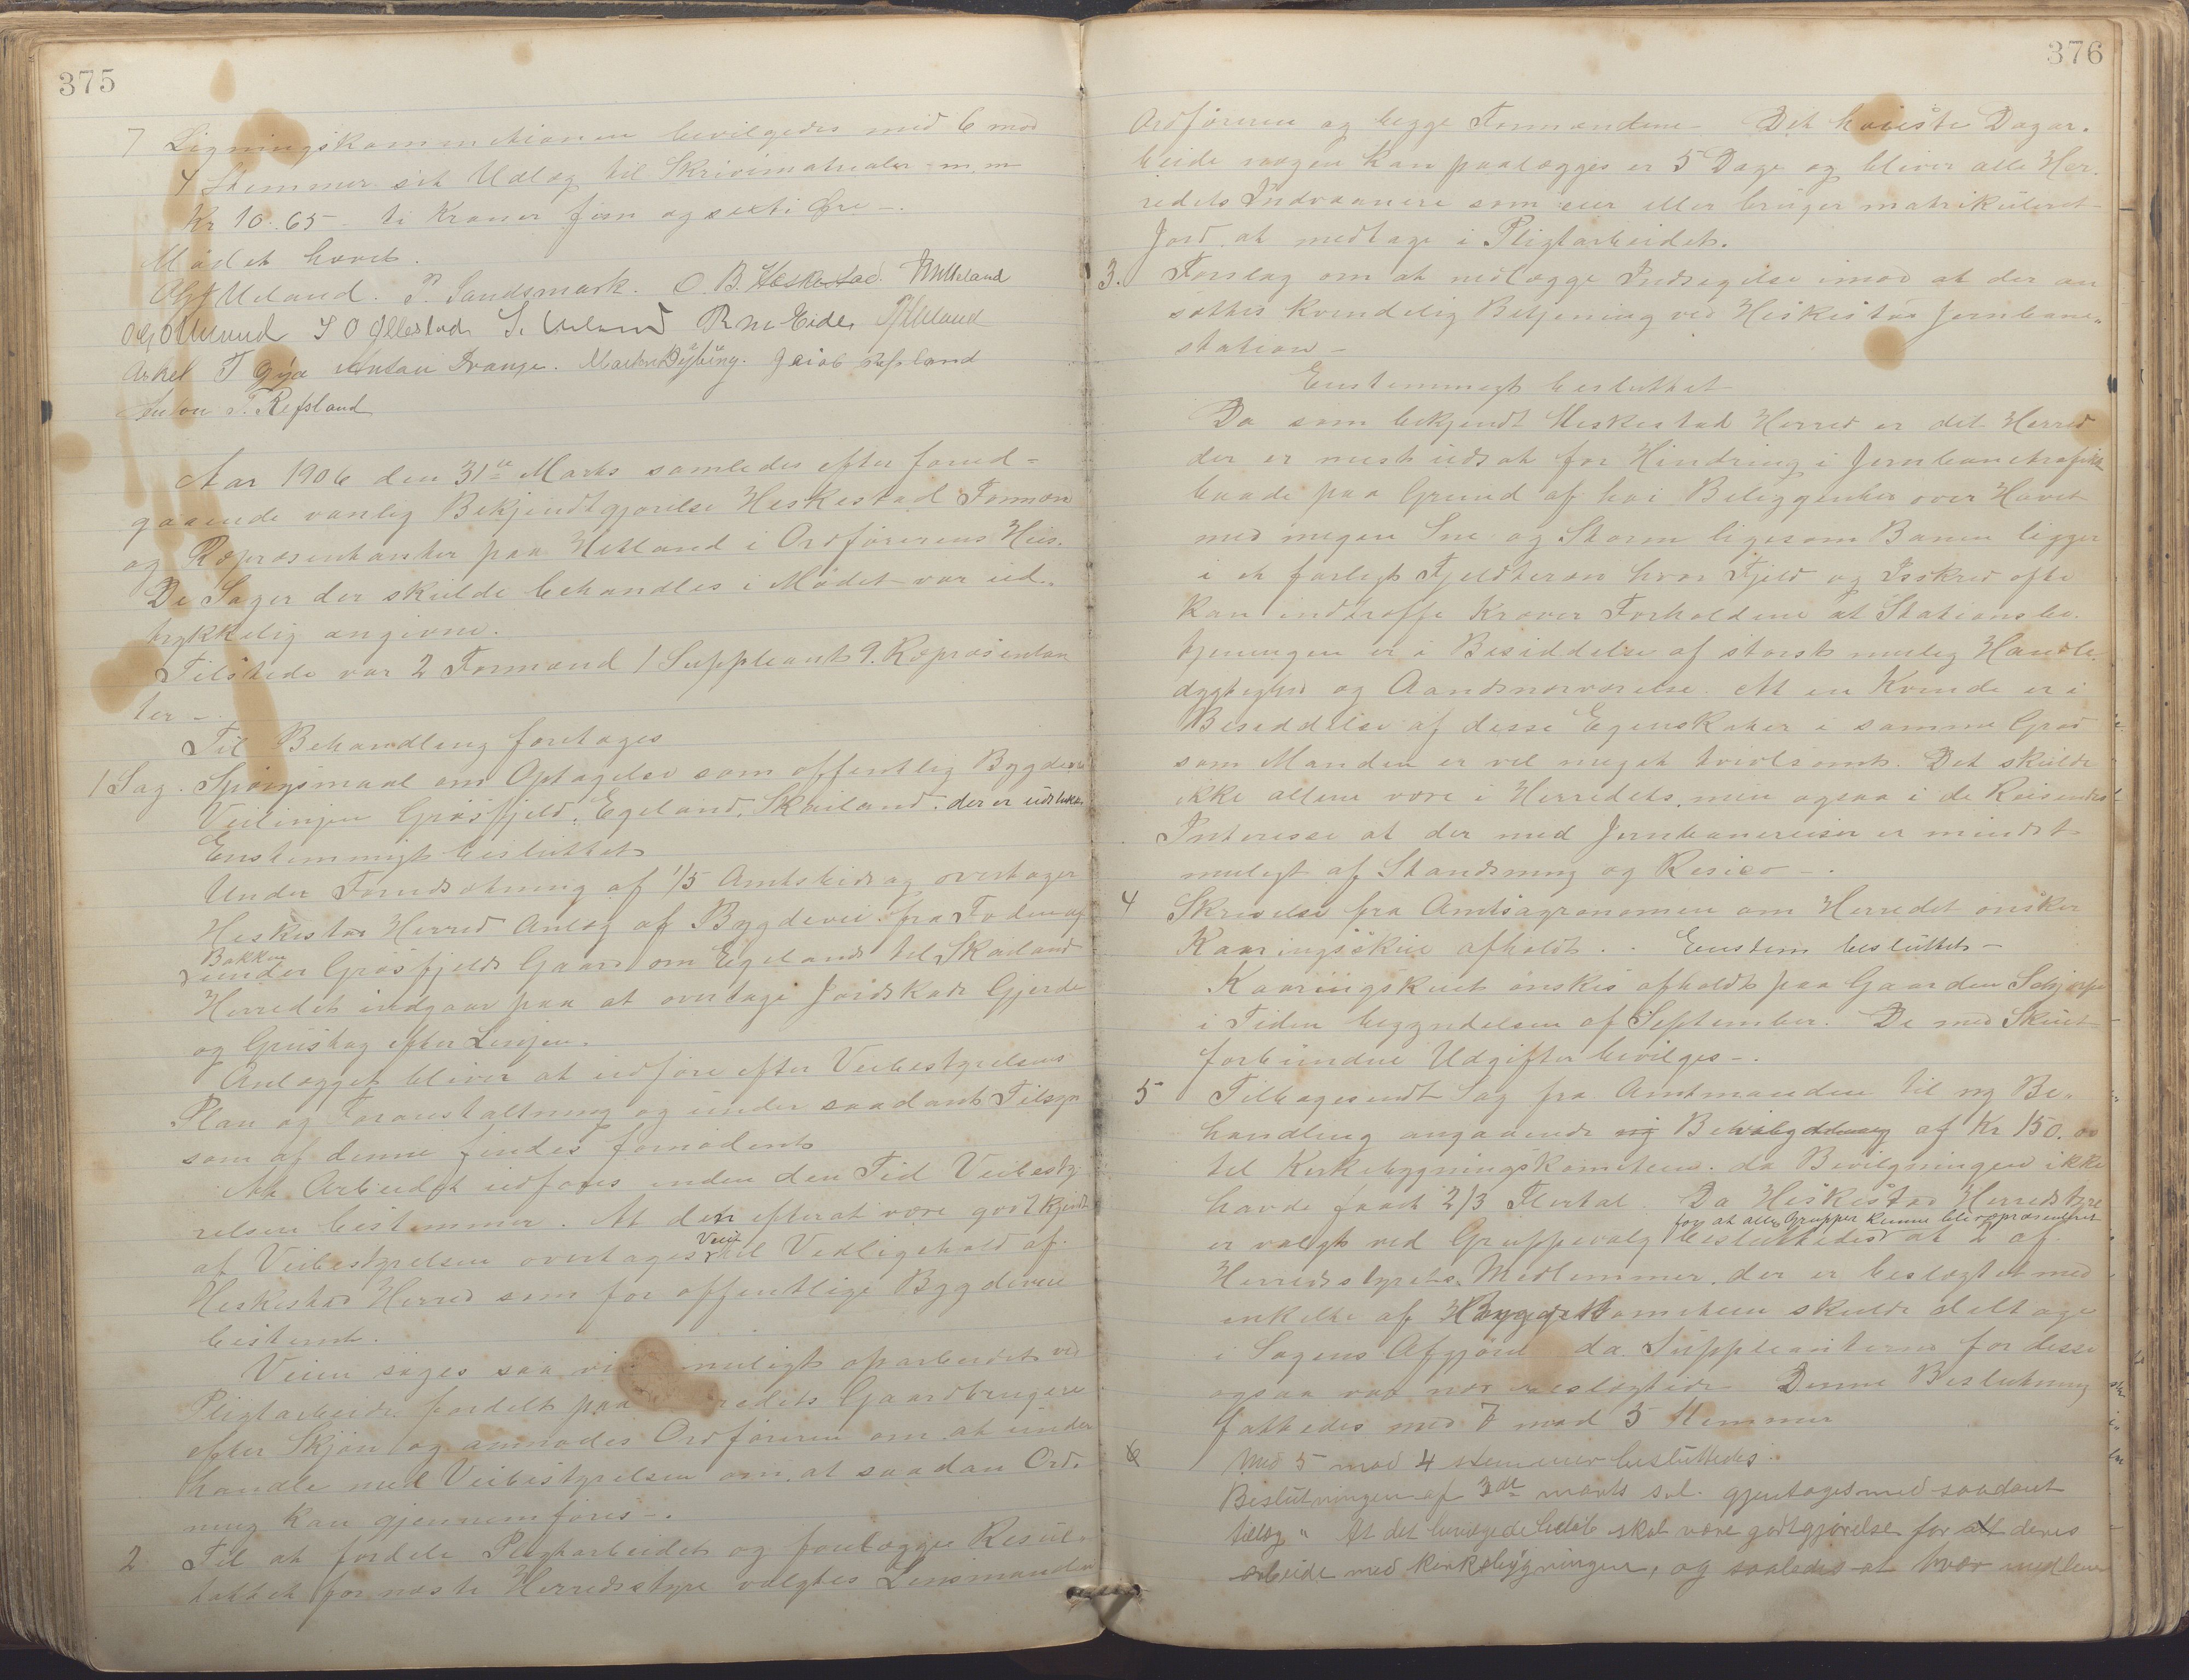 375
7 Ligningskommissionen bevilgedes med 6 mod
4 Stemmer sit Udlæg til Skrivematrialer m.m
Kr 10.65 ti Kroner fem og sexti Øre -.
Mødet hævet.
Ueland. P. Sandsmark. O. B. Heskestad.
Ueland S O Gllestad S. Ueland R M Eide Ueland
Askel T Gya Anton Drange. Martin Dybing. Jacob Refsland
Anton T. Refsland
Aar 1906 den 31te Marts samledes efter forud=
gaaende vanlig Bekjendtgjørelse Heskestad Formæn
og Repræsentanter paa Hetland i Ordførerens Hus.
De Sager der skulde behandles i Mødet var ud-
trykkelig angivne.
Tilstede var 2 Formænd 1 Suppleant 9. Repræsentan
ter -
Til Behandling foretages
1 Sag. Spørgsmaal om Optagelse som offentlig Bygdevei
Veilinjen Gräsfjeld, Egeland, Skailand. der er udstukket
Enstemmigt besluttet
Under Forudsætning af 1/5 Amtsbidrag overtager
Heskestad Herred Anlæg af Bygdevei fra Foden af
Bakken
under Gräsfjelds Gaard om Egelands til Skailand
Herredet indgaar paa at overtage Jordskade Gjerde
og Grustag efter Linjen.
Anlægget bliver at udføre efter Veibestyrelsens
Plan og Foranstaltning og under saadant Tilsyn
som af denne findes fornødent
At Arbeidet udføres inden den Tid Veibesty-
relsen bestemmer. At den efterat være godtkjendt
Veien
af Veibestyrelsen overtages til Vedligehold af
Heskestad Herred som for offentlige Bygdeveie
bestemt.
Veien søges saa vidt muligt oparbeidet ved
Pligtarbeide fordelt paa Herredets Gaardbrugere
efter Skjøn og anmodes Ordføreren om at under
handle med Veibestyrelsen om at saadan Ord-
ning kan gjennemføres -.
2 Til at fordele Pligtarbeidet og forelægge Resul-
tattet for næste Herredsstyre valgtes Lensmanden
376
Ordføreren og begge Formændene - Det høieste Dagar-
beide nogen kan paalægges er 5 Dage og bliver alle Her-
redets Indvaanere som eier eller bruger matrikuleret
Jord at medtage i Pligtarbeidet.
3. Forslag om at nedlægge Indsigelse imod at der an
sættes kvindelig Betjening ved Heskestad Jernbane-
station -
Enstemmigt besluttet
Da som bekjendt Heskestad Herred er det Herred
der er mest udsat for Hindring i Jernbanetrafik
baade paa Grund af høi Beliggenhed over Havet
med megen Sne og Storm ligesom Banen ligger
i et farligt Fjeldteræn hvor Fjeld og Isskred ofte
kan indtræffe kræver Forholdene at Stationsbe-
tjeningen er i Besiddelse af størst mulig Handle-
dygtighed og Aandsnærværelse. At en Kvinde er i
Besiddelse af desse Egenskaber i samme Grad
som Manden er vel meget tvivlsomt. Det skulde
ikke allene være i Herredets, men ogsaa i de Reisendes
Interesse at der med Jernbanereiser er mindst
muligt af Standsning og Resico -.
4 Skrivelse fra Amtsagronomen om Herredet ønsker
Kaaringsskue afholdt. . Enstem besluttet -
Kaaringskuet ønskes afholdt paa Gaarden
i Tiden begyndelsen af September. De med Skuet
forbundne Udgifter bevilges -.
5 Tilbagesendt Sag fra Amtmanden til ny Be-
handling angaaende Bevilgning af Kr 150.00
til Kirkebygningskomiteen. da Bevilgningen ikke
havde faaet 2/3 Flertal. Da Heskestad Herredstyre
for at alle Grupper kunne bli repræsenteret
er valgt ved Gruppevalg besluttedes at 2 af
Herredsstyrets Medlemmer, der er beslægtet med
enkelte af Byggekomiteen skulde deltage
i Sagens Afgjørelse da Suppleanterne for desse
ogsaa var nær beslægtede Denne Beslutning
fattedes med 7 mod 5 Stemmer
6 Med 5 mod 4 stemmer besluttedes:
Beslutningen af 3de marts sel. gjentages med saadant
tillæg " At det bevilgede beløb skal være godtgjørelse for alt deres
arbeide med kirkebygningen, og saaledes at hver medlem